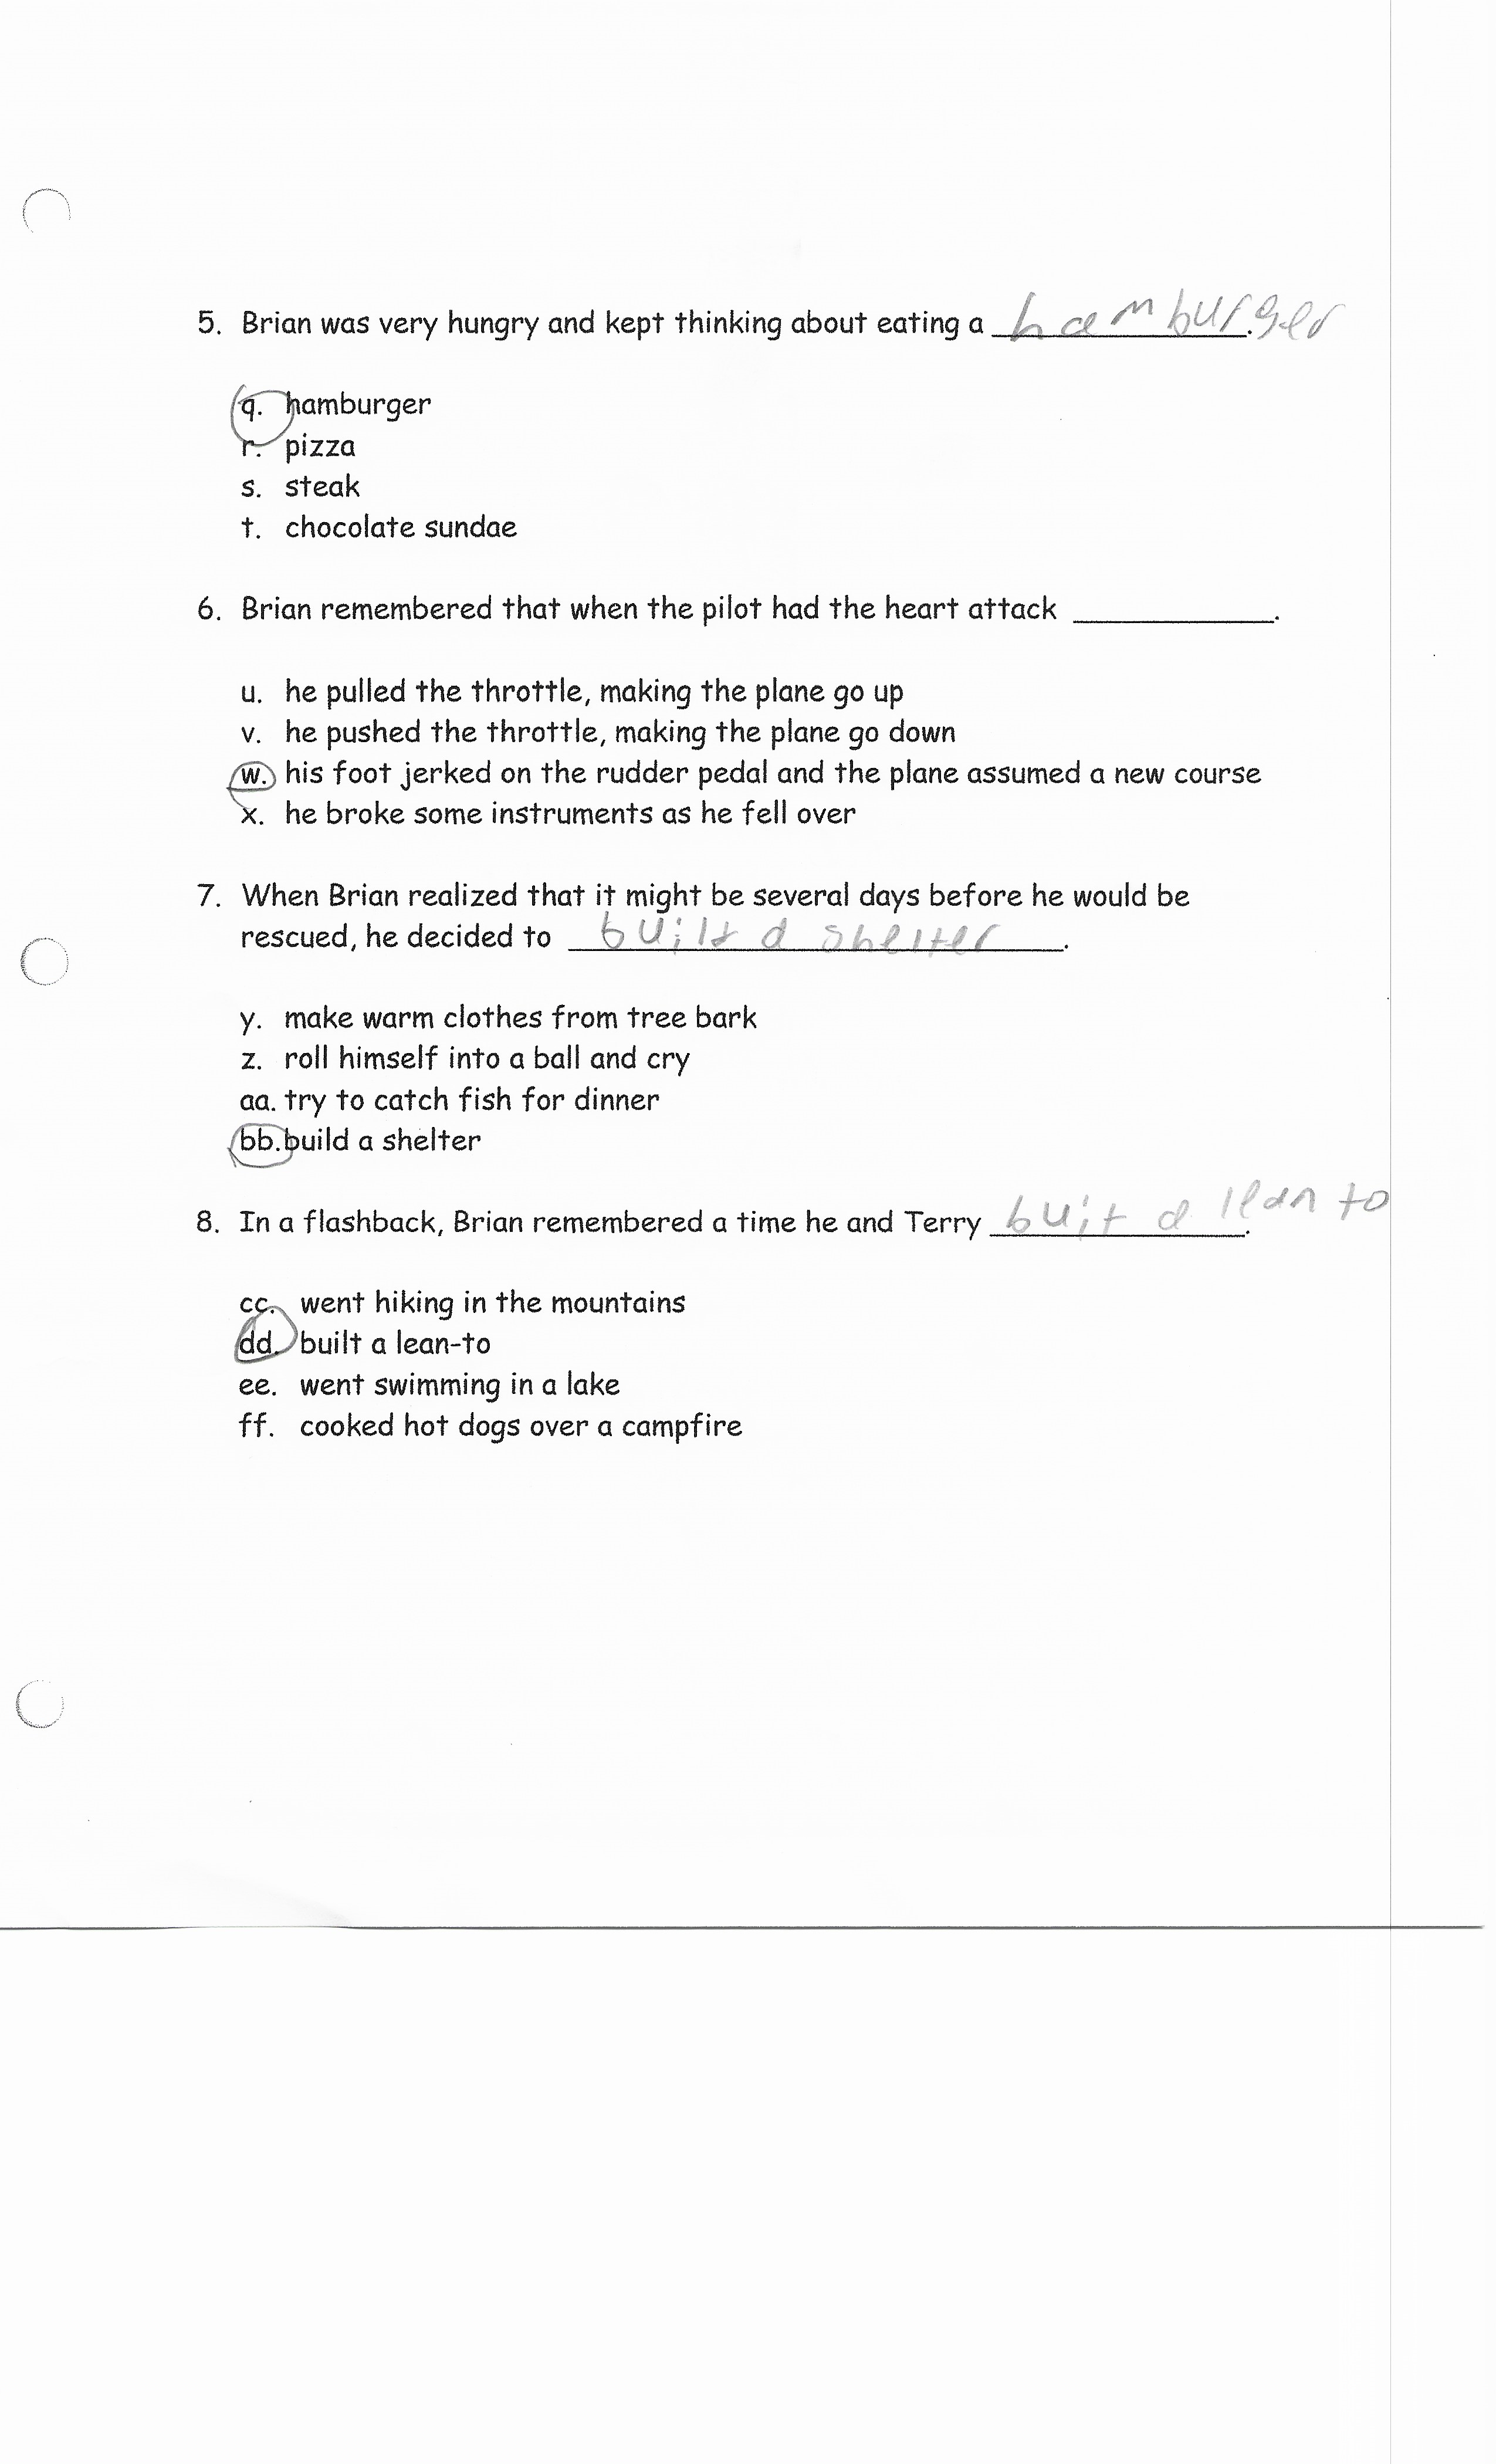 5. Brian was very hungry and kept thinking about eating a hamburger.
q. hamburger
r. pizza
s. steak
t. chocolate sundae
6. Brian remembered that when the pilot had the heart attack ____________.
u. he pulled the throttle, making the plane go up
v. he pushed the throttle, making the plane go down
w. his foot jerked on the rudder pedal and the plane assumed a new course
x. he broke some instruments as he fell over
7. When Brian realized that it might be several days before he would be
rescued, he decided to built a shelter.
y. make warm clothes from tree bark
z. roll himself into a ball and cry
aa. try to catch fish for dinner
bb. build a shelter
8. In a flashback, Brian remembered a time he and Terry buit a lean to.
cc. went hiking in the mountains
dd. built a lean-to
ee. went swimming in a lake
ff. cooked hot dogs over a campfire